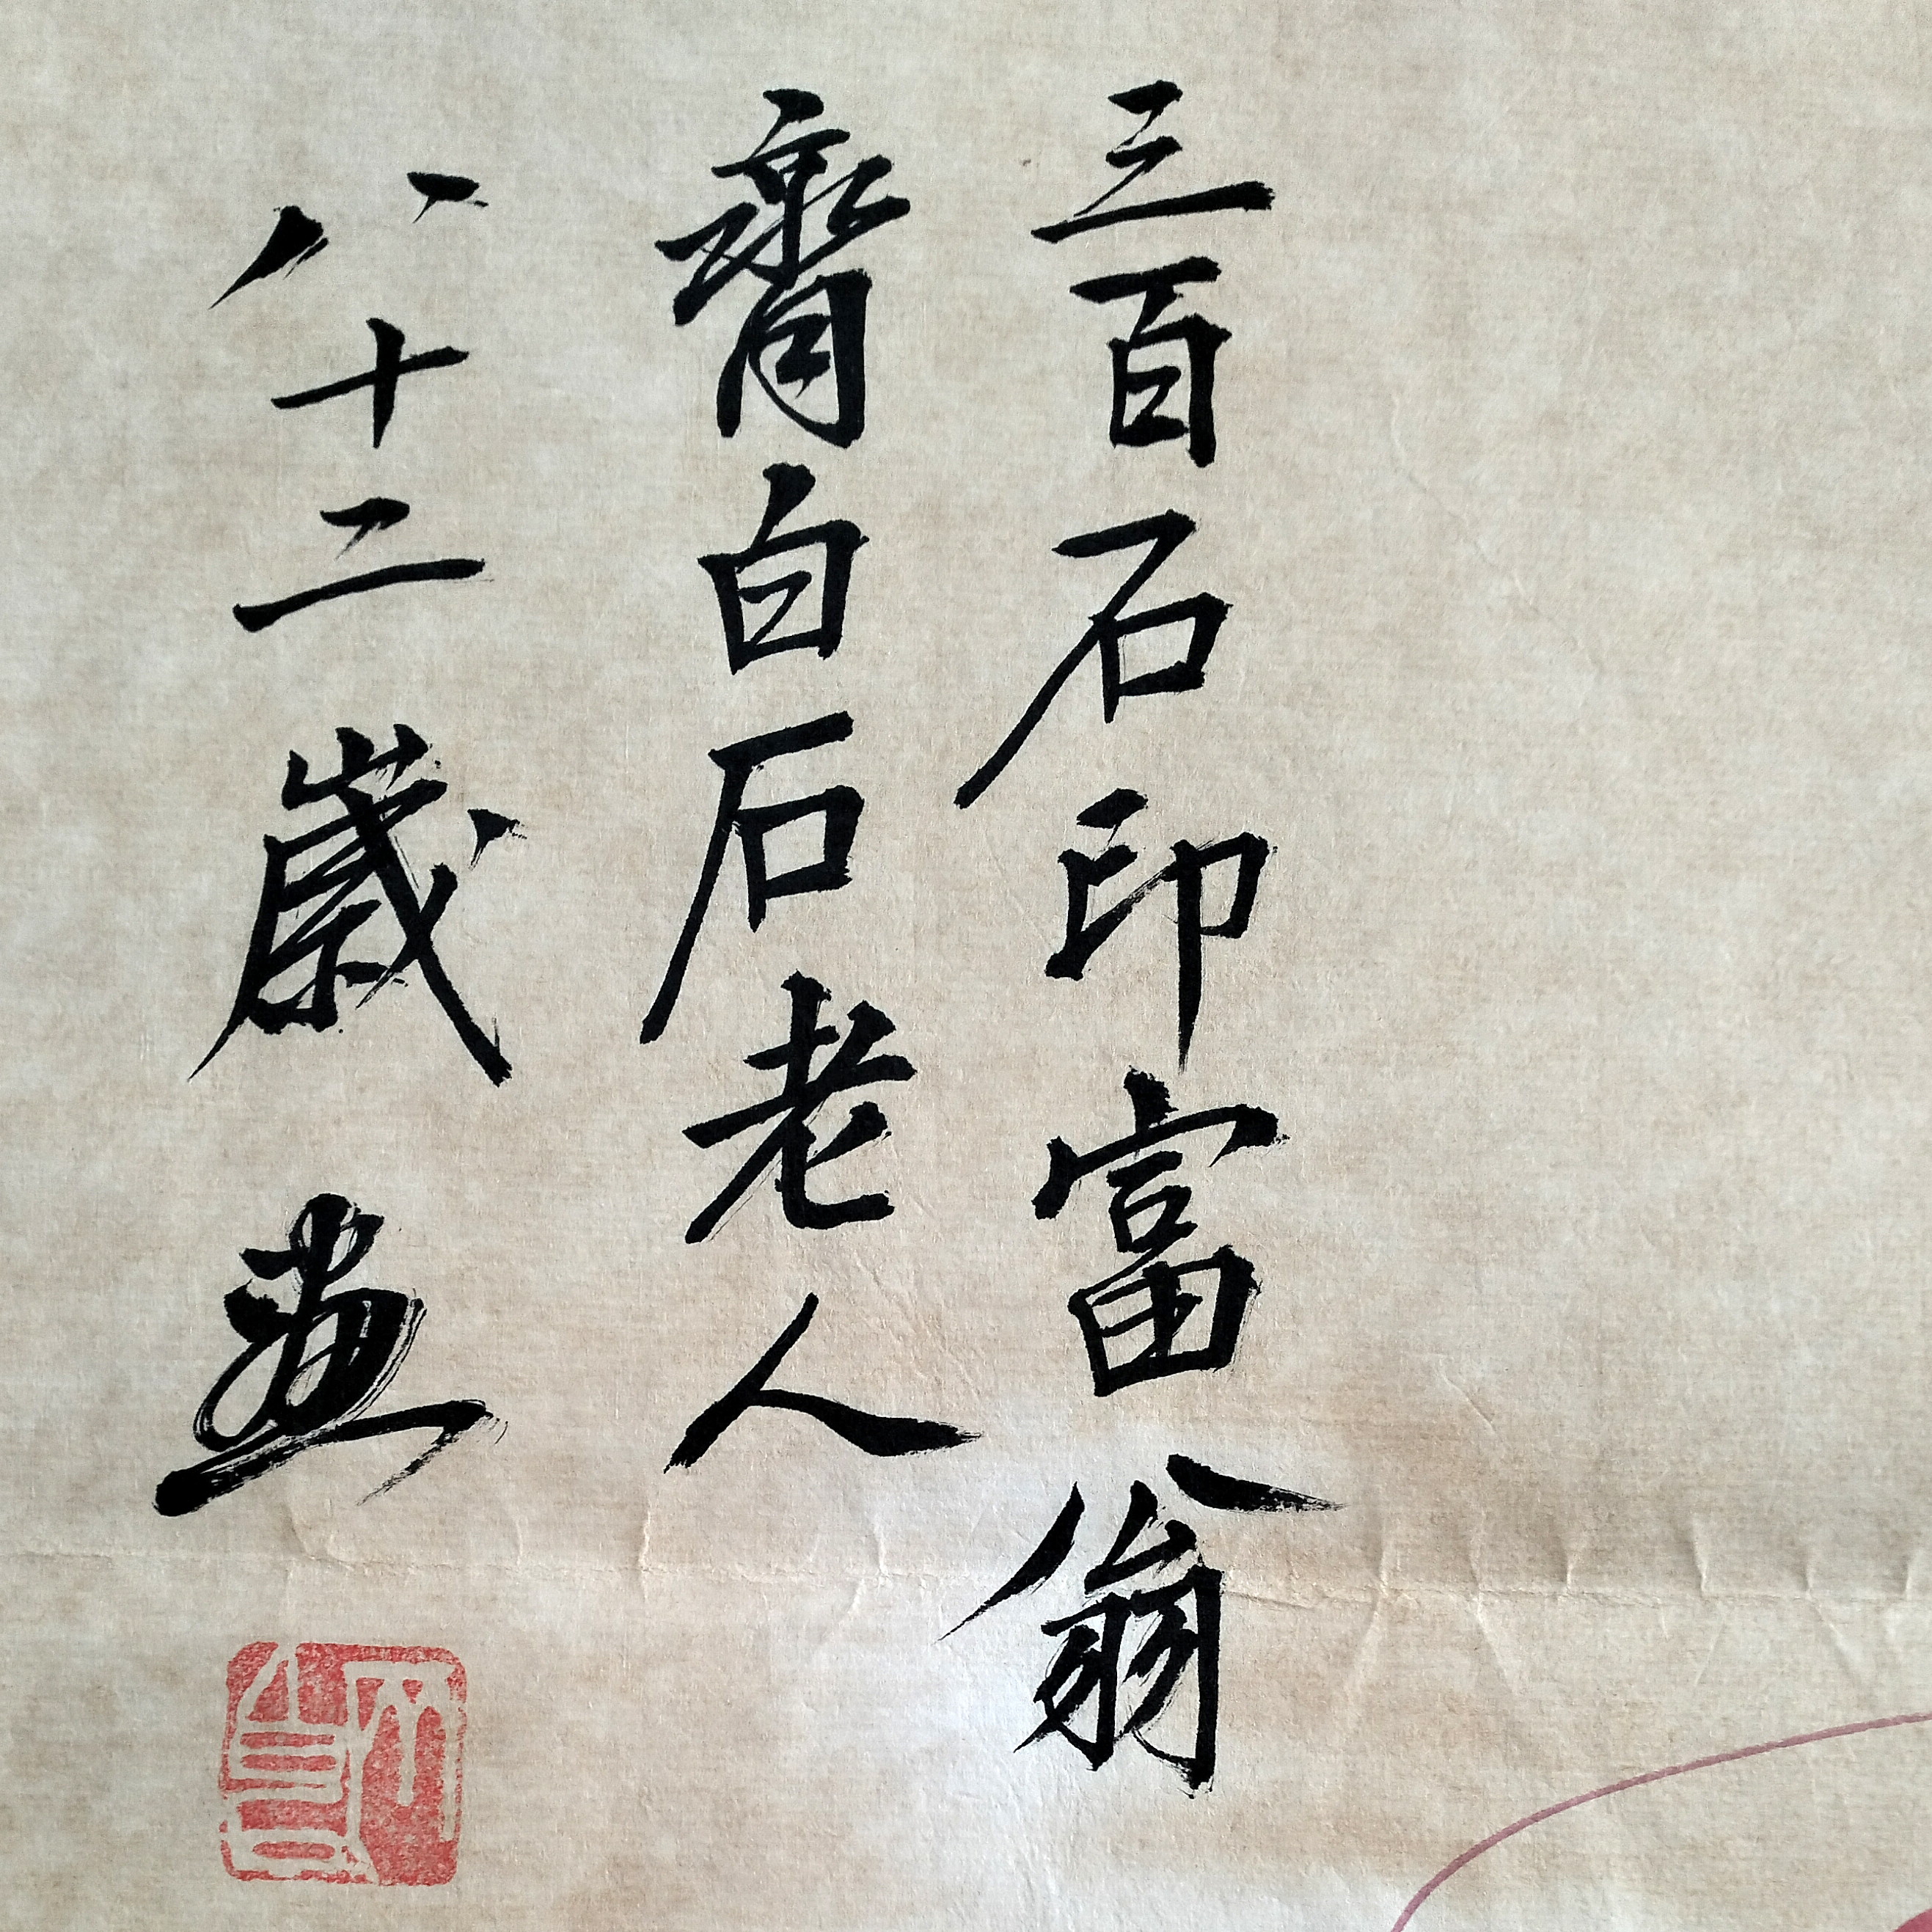 三百石印富翁
齊白石老人
八十二歲畫